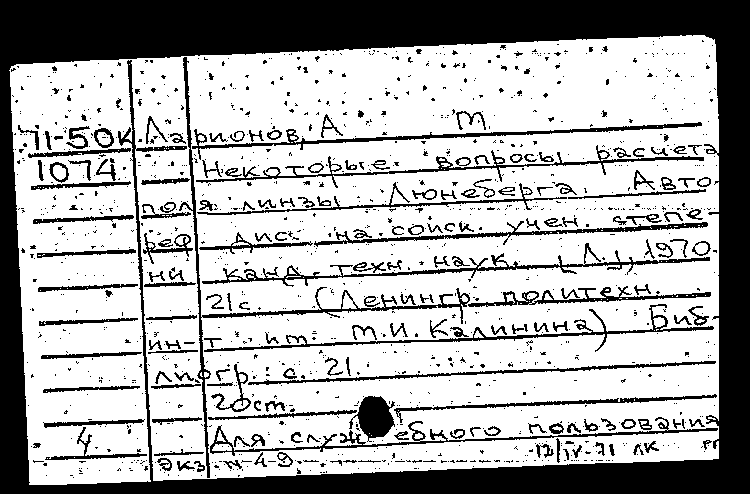 71-50К Ларионов, А М
1074 Некоторые вопросы расчета
поля линзы Люнеберга. Авто-
реф. дис. на соиск. учен. степе-
ни канд. техн. наук. [Л.], 1970.
21с. (Ленингр. политехн.
ин-т им. М.И. Калинина) Биб-
лиогр.: с. 21.
20ст.
4 Для служебного пользования
экз. N 49 12/IV-71 ЛК